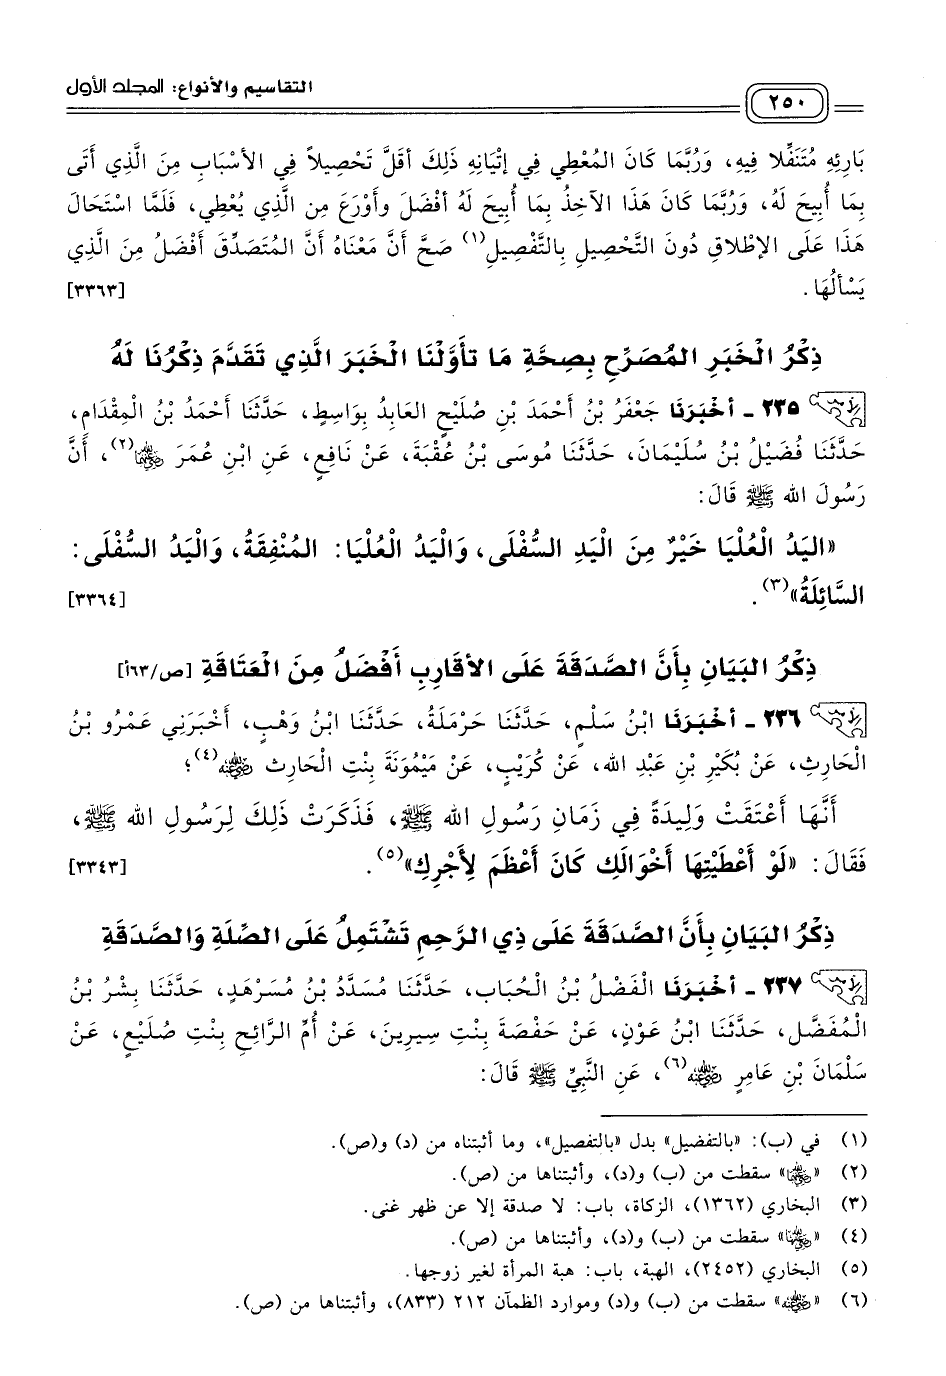 التقاسيم والأنواع: المجلد الأول
٢٥٠
بَارِئِهِ مُتَنَفِّلا فِيهِ، وَرُبَّمَا كَانَ المُعْطِي فِي إتْيَانِهِ ذَلِكَ أقَلَّ تَحْصِيلاً فِي الأسْبَاب مِنَ الَّذِي أتَى
بِمَا أُبيحَ لَهُ، وَرُبَّمَا كَانَ هَذَا الآخِذُ بِمَا أُبيحَ لَهُ أفْضَلَ وأوْرَعَ مِن الَّذِي يُعْطِي، فَلَمَّا اسْتَحَالَ
هَذَا عَلَى الإطْلاقِ دُونَ التَّحْصِيلِ بِالتَّفْصِيلِ(١) صَحَّ أنَّ مَعْنَاهُ أنَّ المُتَصَدِّقَ أفْضَلُ مِنَ الَّذِي
يَسْألُهَا. [٣٣٦٣]
ذِكْرُ الْخَبَرِ المُصَرِّحِ بِصِحَّةِ مَا تأوَّلْنَا الْخَبَرَ الَّذِي تَقَدَّمَ ذِكْرُنَا لَهُ
٢٣٥ - أخْبَرَنَا جَعْفَرُ بْنُ أحْمَدَ بْنِ صُلَيْحٍ العَابِدُ بِوَاسِطٍ، حَدَّثَنَا أحْمَدُ بْنُ المِقْدَامِ،
حَدَّثَنَا فُضَيْلُ بْنُ سُلَيْمَانَ، حَدَّثَنَا مُوسَى بْنُ عُقْبَةَ، عَنْ نَافِعٍ، عَنِ ابْنِ عُمَرَ رضي الله عنهما(٢)، أنَّ
رَسُولَ الله ﷺ قَالَ:
«اليَدُ الْعُلْيَا خَيْرٌ مِنَ الْيَدِ السُّفْلَى، وَالْيَدُ الْعُلْيَا: المُنْفِقَةُ، وَالْيَدُ السُّفْلَى:
السَّائِلَةُ»(٣). [٣٣٦٤]
ذِكْرُ البَيَانِ بِأَنَّ الصَّدَقَةَ عَلَى الأقَارِبِ أفْضَلُ مِنَ الْعَتَاقَةِ [ص/٦٣أ]
٢٣٦ - أخْبَرَنَا ابْنُ سَلْمٍ، حَدَّثَنَا حَرْمَلَةُ، حَدَّثَنَا ابْنُ وَهْبٍ، أخْبَرَنِي عَمْرُو بْنُ
الْحَارِثِ، عَنْ بُكَيْرِ بْنِ عَبْدِ الله، عَنْ كُرَيْبٍ، عَنْ مَيْمُونَةَ بِنْتِ الْحَارِث رضي الله عنها(٤)؛
أَنَّهَا أَعْتَقَتْ وَلِيدَةً فِي زَمَانِ رَسُولِ الله ﷺ، فَذَكَرَتْ ذَلِكَ لِرَسُولِ الله ﷺ،
فَقَالَ: «لَوْ أَعْطَيْتِهَا أخْوَالَكِ كَانَ أَعْظَمَ لِأَجْرِكِ»(٥). [٣٣٤٣]
ذِكْرُ البَيَانِ بِأَنَّ الصَّدَقَةَ عَلَى ذِي الرَّحِمِ تَشْتَمِلُ عَلَى الصِّلَةِ وَالصَّدَقَةِ
٢٣٧ - أخْبَرَنَا الْفَضْلُ بْنُ الْحُبَاب، حَدَّثَنَا مُسَدَّدُ بْنُ مُسَرْهَدٍ، حَدَّثَنَا بِشْرُ بْنُ
الْمُفَضَّلِ، حَدَّثَنَا ابْنُ عَوْنٍ، عَنْ حَفْصَةَ بِنْتِ سِيرِينَ، عَنْ أُمِّ الرَّائِحِ بِنْتِ صُلَيْعٍ، عَنْ
سَلْمَانَ بْنِ عَامِرٍ رضي الله عنه(٦)، عَنِ النَّبِيِّ ﷺ قَالَ:
(١) في (ب): «بالتفضيل» بدل «بالتفصيل»، وما أثبتناه من (د) و(ص).
(٢) «رضي الله عنهما» سقطت من (ب) و(د)، وأثبتناها من (ص).
(٣) البخاري (١٣٦٢)، الزكاة، باب: لا صدقة إلا عن ظهر غنى.
(٤) «رضي الله عنها» سقطت من (ب) و(د)، وأثبتناها من (ص).
(٥) البخاري (٢٤٥٢)، الهبة، باب: هبة المرأة لغير زوجها.
(٦) «رضي الله عنه» سقطت من (ب) و(د) وموارد الظمآن ٢١٢ (٨٣٣)، وأثبتناها من (ص).